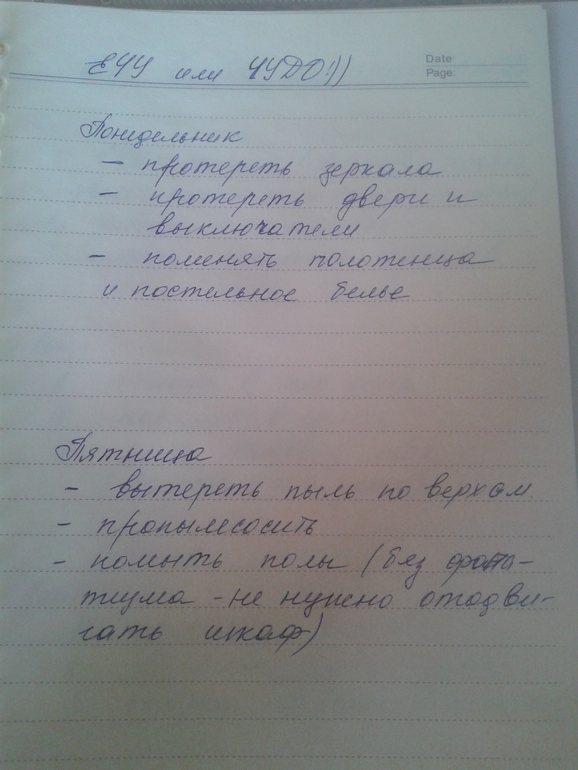 ЕЧУ или ЧУДО!))
Date:
Page:
Понидельник
- протереть зеркала
- протереть двери и
выключатели
- поменять полотенца
и постельное белье
Пятница
- вытереть пыль по верхам
- пропылесосить
- помыть полы (без фана-
тизма - не нужно отодви-
гать шкаф)